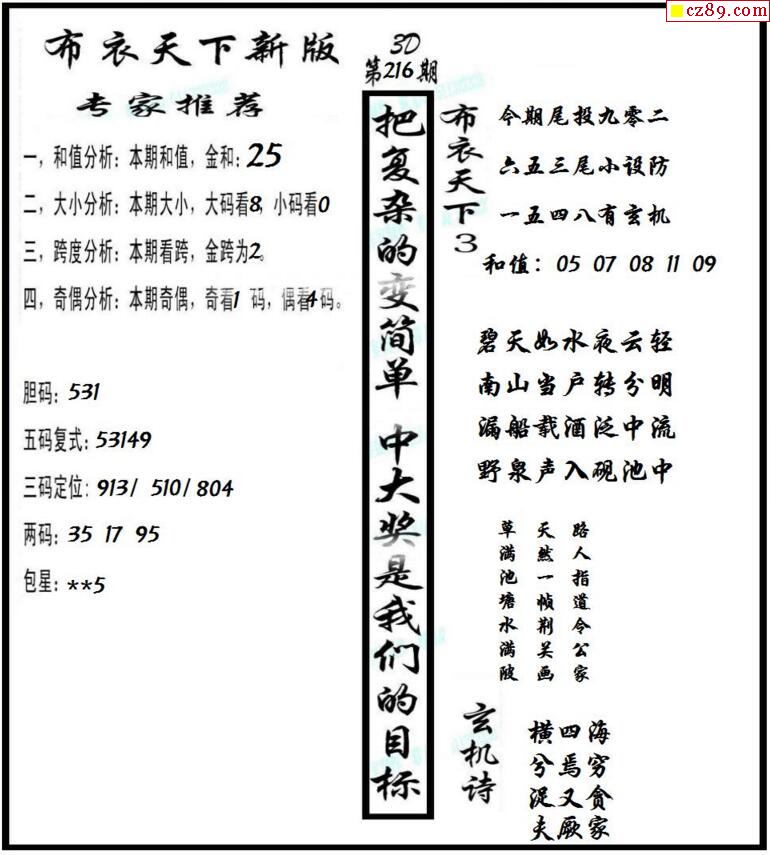 cz89.com
布衣天下新版
专家推荐
一，和值分析：本期和值，金和：25
二，大小分析：本期大小，大码看8，小码看0
三，跨度分析：本期看跨，金跨为2。
四，奇偶分析：本期奇偶，奇看1 码，偶看4码。
胆码：531
五码复式：53149
三码定位：913/ 510/ 804
两码：35 17 95
包星：**5
3D
第216期
把复杂的变简单 中大奖是我们的目标
布衣天下3
今期尾投九零二
六五三尾小设防
一五四八有玄机
和值：05 07 08 11 09
碧天如水夜云轻
南山当户转分明
漏船载酒泛中流
野泉声入砚池中
草满池塘水满陂
天然一帧荆关画
路人指道令公家
玄机诗
横四海
兮焉穷
浞又贪
夫厥家